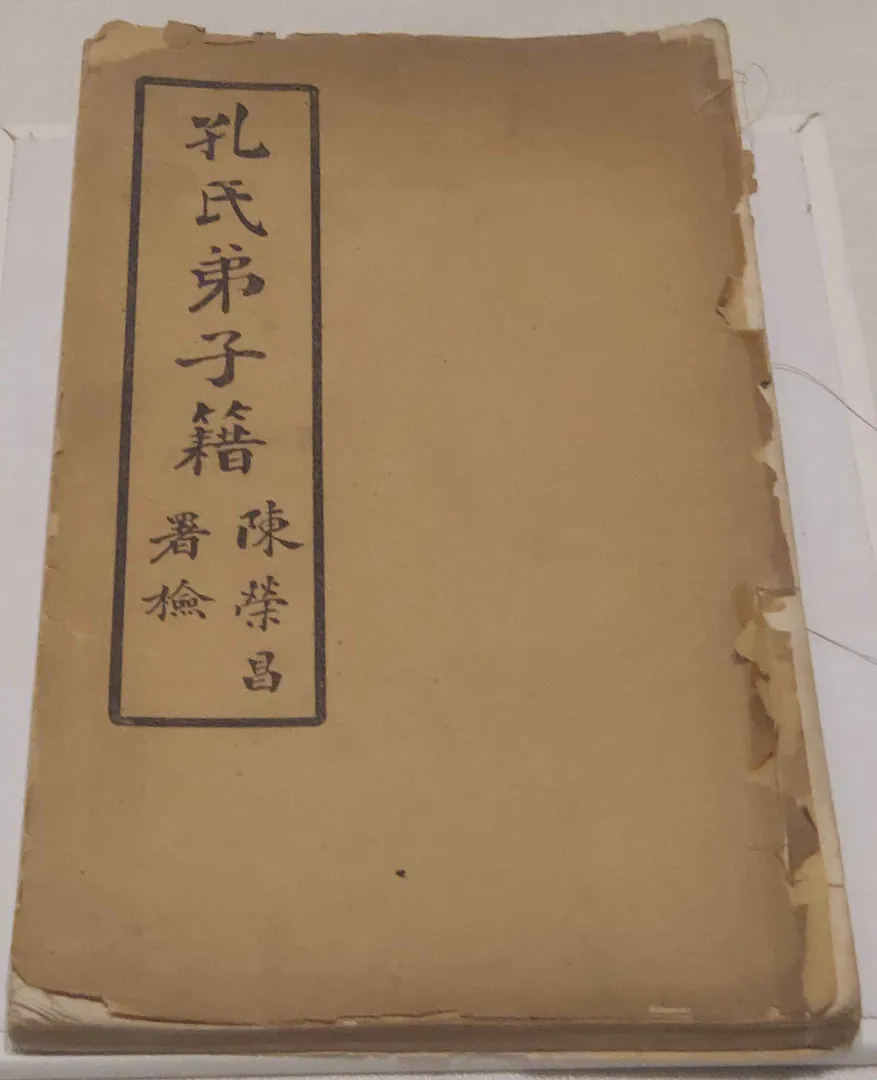 孔氏弟子籍
陳榮昌
署檢